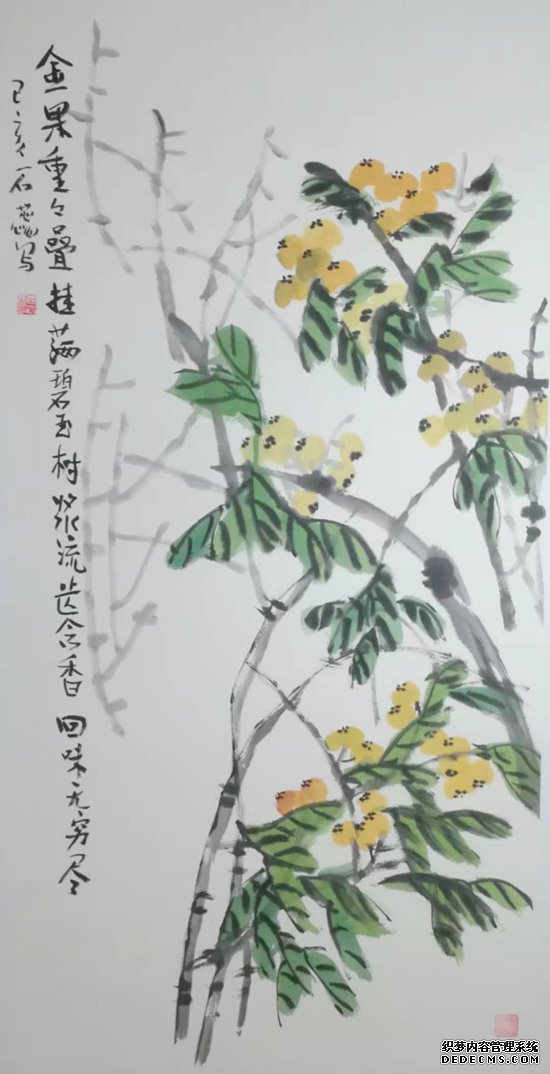 金果重々叠挂满碧玉树浆流齿含香回味无穷尽
己亥石
写
织梦内容管理系统
DEDECMS.COM